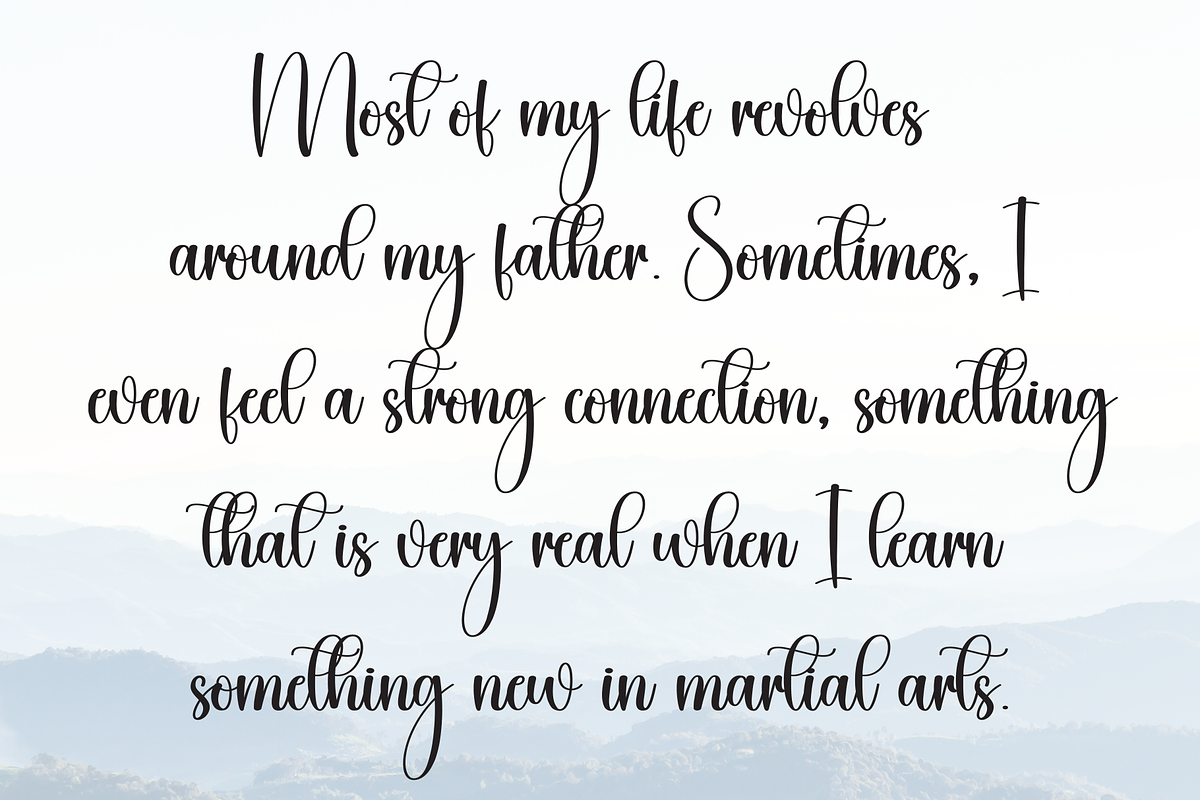 Most of my life revolves
around my father. Sometimes, I
even feel a strong connection, something
that is very real when I learn
something new in martial arts.